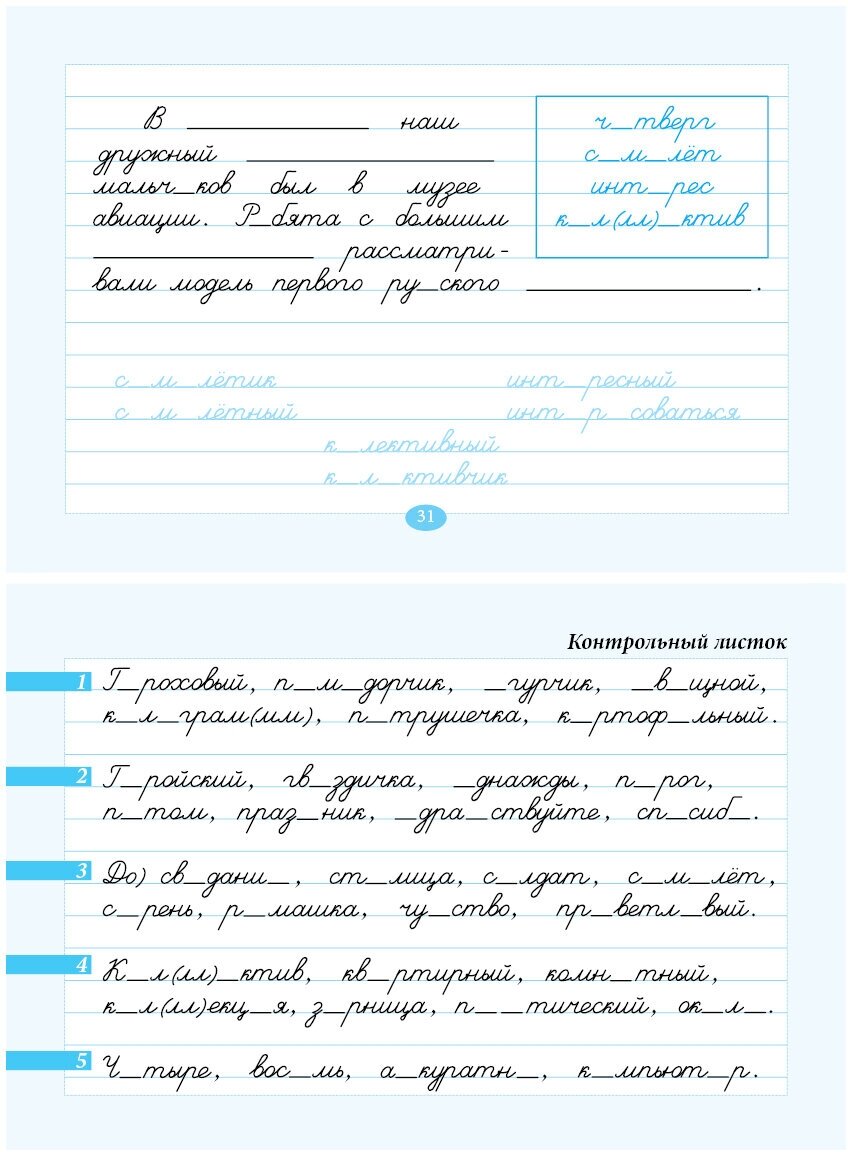 В ____________ наш
ч_тверг
дружный ________________
с_м_лёт
мальч_ков был в музее
инт_рес
авиации. Р_бята с большим
к_л(лл)_ктив
______________ рассматри-
вали модель первого ру_ского ______________.
с_м_лётик инт_ресный
с_м_лётный инт_р_соваться
к_лективный
к_л_ктивчик
31
Контрольный листок
1 Г_роховый, п_м_дорчик, _гурчик, _в_щной,
к_л_грам(мм), п_трушечка, к_ртоф_льный.
2 Г_ройский, гв_здичка, _днажды, п_рог,
п_том, праз_ник, _дра_ствуйте, сп_сиб_.
3 До) св_дани_, ст_лица, с_лдат, с_м_лёт,
с_рень, р_машка, чу_ство, пр_ветл_вый.
4 К_л(лл)_ктив, кв_ртирный, комн_тный,
к_л(лл)екц_я, з_рница, п__тический, ок_л_.
5 Ч_тыре, вос_мь, а_куратн_, к_мпьют_р.